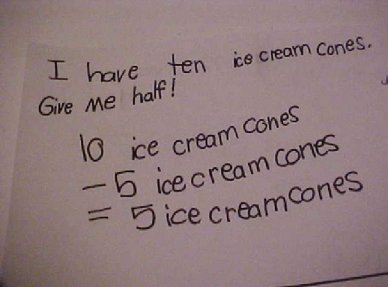 I have ten ice cream cones.
Give me half!
10 ice cream cones
- 5 ice cream cones
= 5 ice cream cones